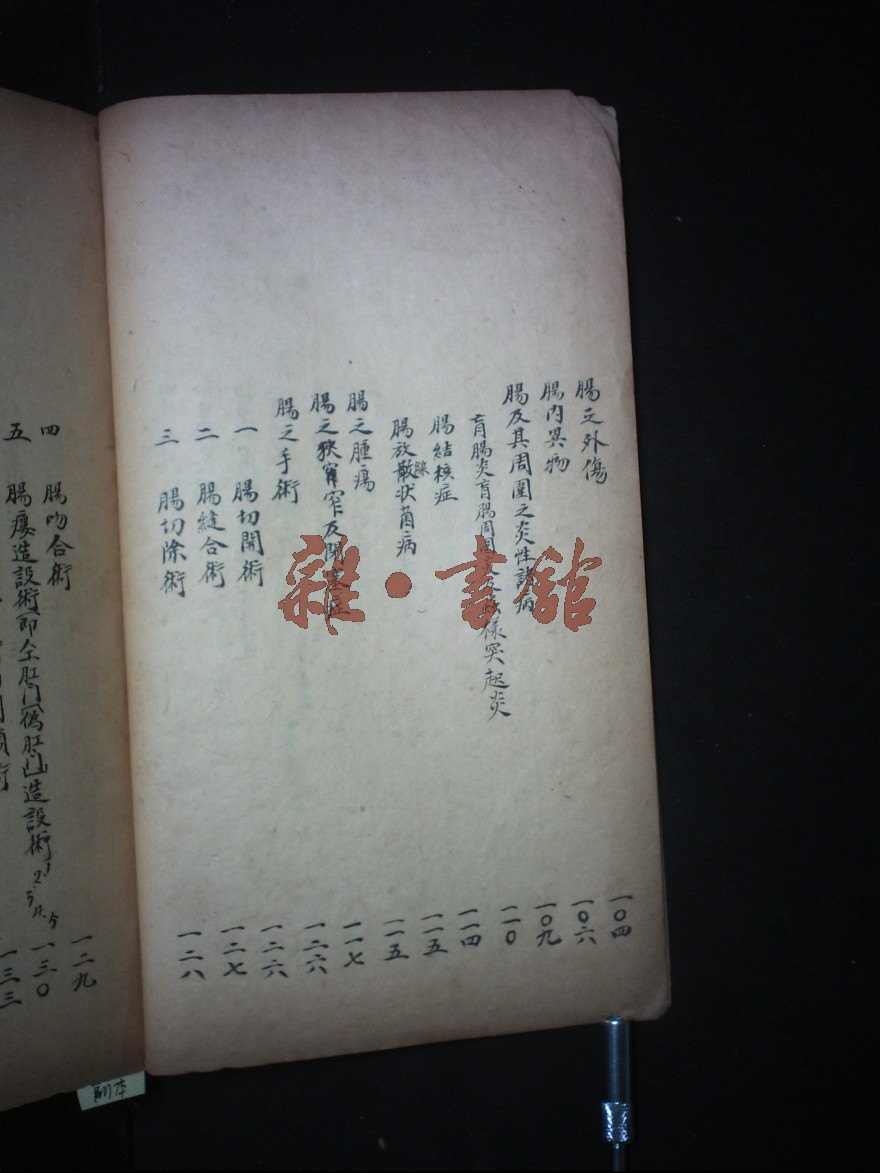 腸之外傷 一〇四
腸內異物 一〇六
腸及其周圍之炎性諸病 一〇九
盲腸炎盲腸周圍炎及 樣突起炎 一一〇
腸結核症 一一四
腸放線狀菌病 一一五
腸之腫瘍 一一五
腸之狹窄及閉塞症 一一七
腸之手術 一二六
一 腸切開術 一二六
二 腸縫合術 一二七
三 腸切除術 一二八
四 腸吻合術 一二九
五 腸瘻造設術即人工肛門(偽肛門)造設術 一三〇
術 一三三
雜·書館
副本